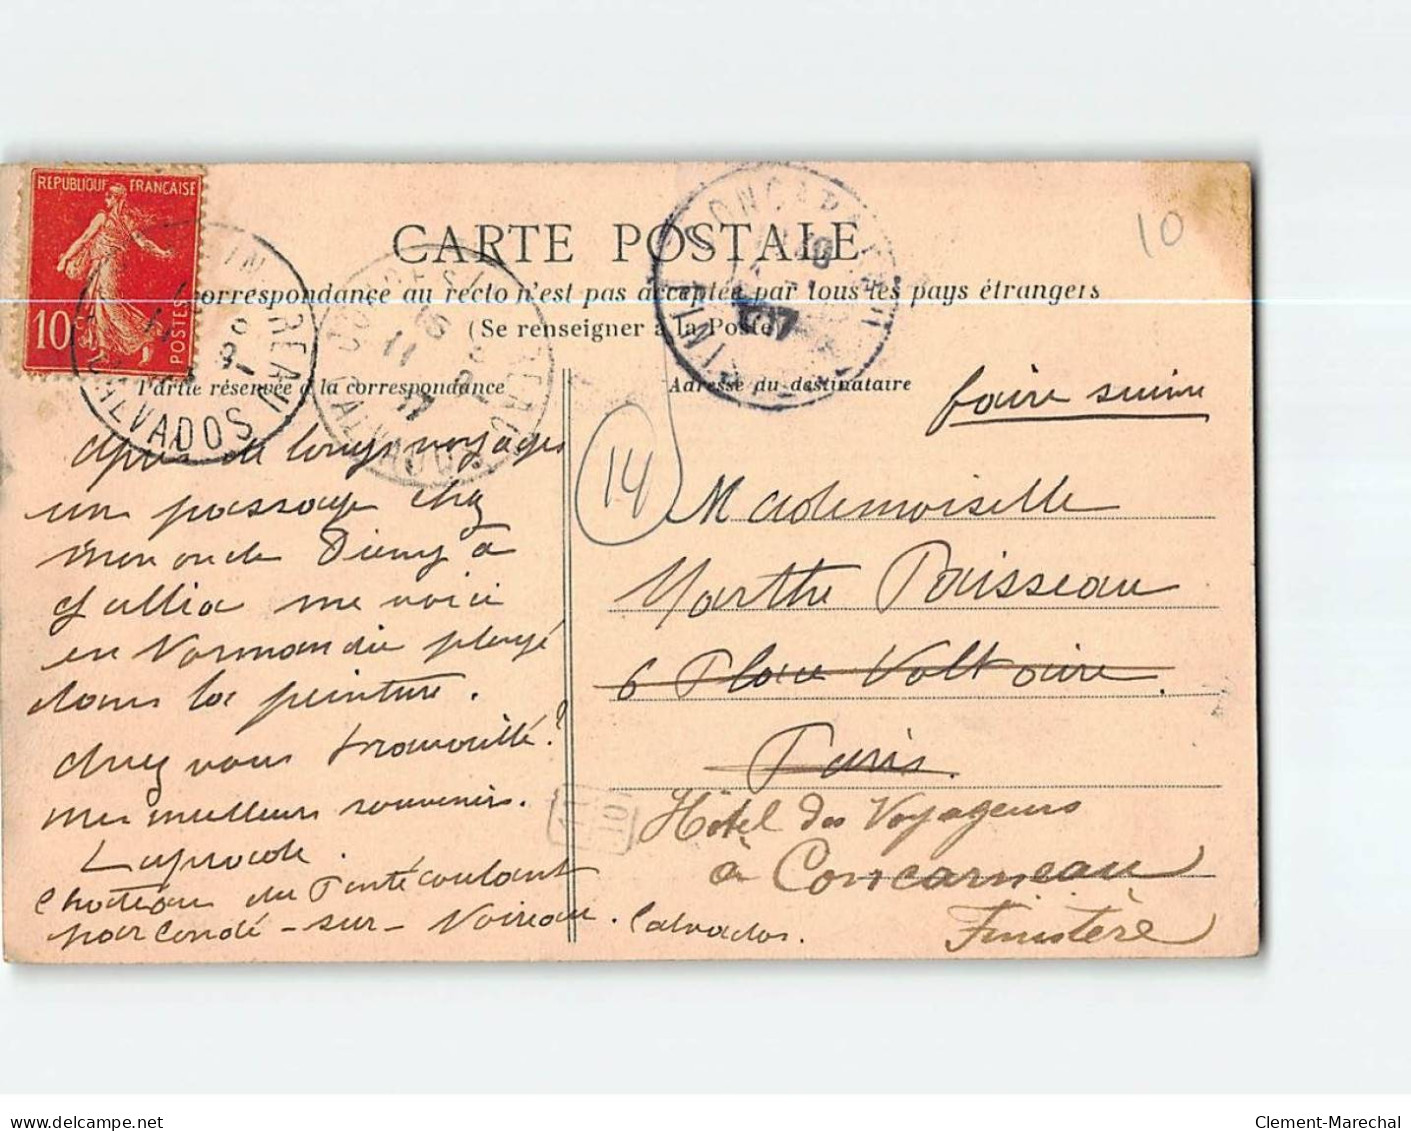 REPUBLIQUE FRANÇAISE
10c
POSTES
CALVADOS
CARTE POSTALE
correspondance au recto n'est pas acceptée par tous les pays étrangers
(Se renseigner à la Poste)
Partie réservée à la correspondance
Adresse du destinataire
10
14
après de longs voyages
un passage chez
mon oncle à
me voici
en Normandie plongé
dans la peinture.
chez vous travaille?
mes meilleurs souvenirs.
Château du Pontécoulant
par Condé-sur-Noireau. Calvados.
faire suivre
Mademoiselle
Marthe Paisseau
6 Place Voltaire.
Paris.
Hôtel des Voyageurs
à Concarneau
Finistère
www.delcampe.net
Clement-Marechal